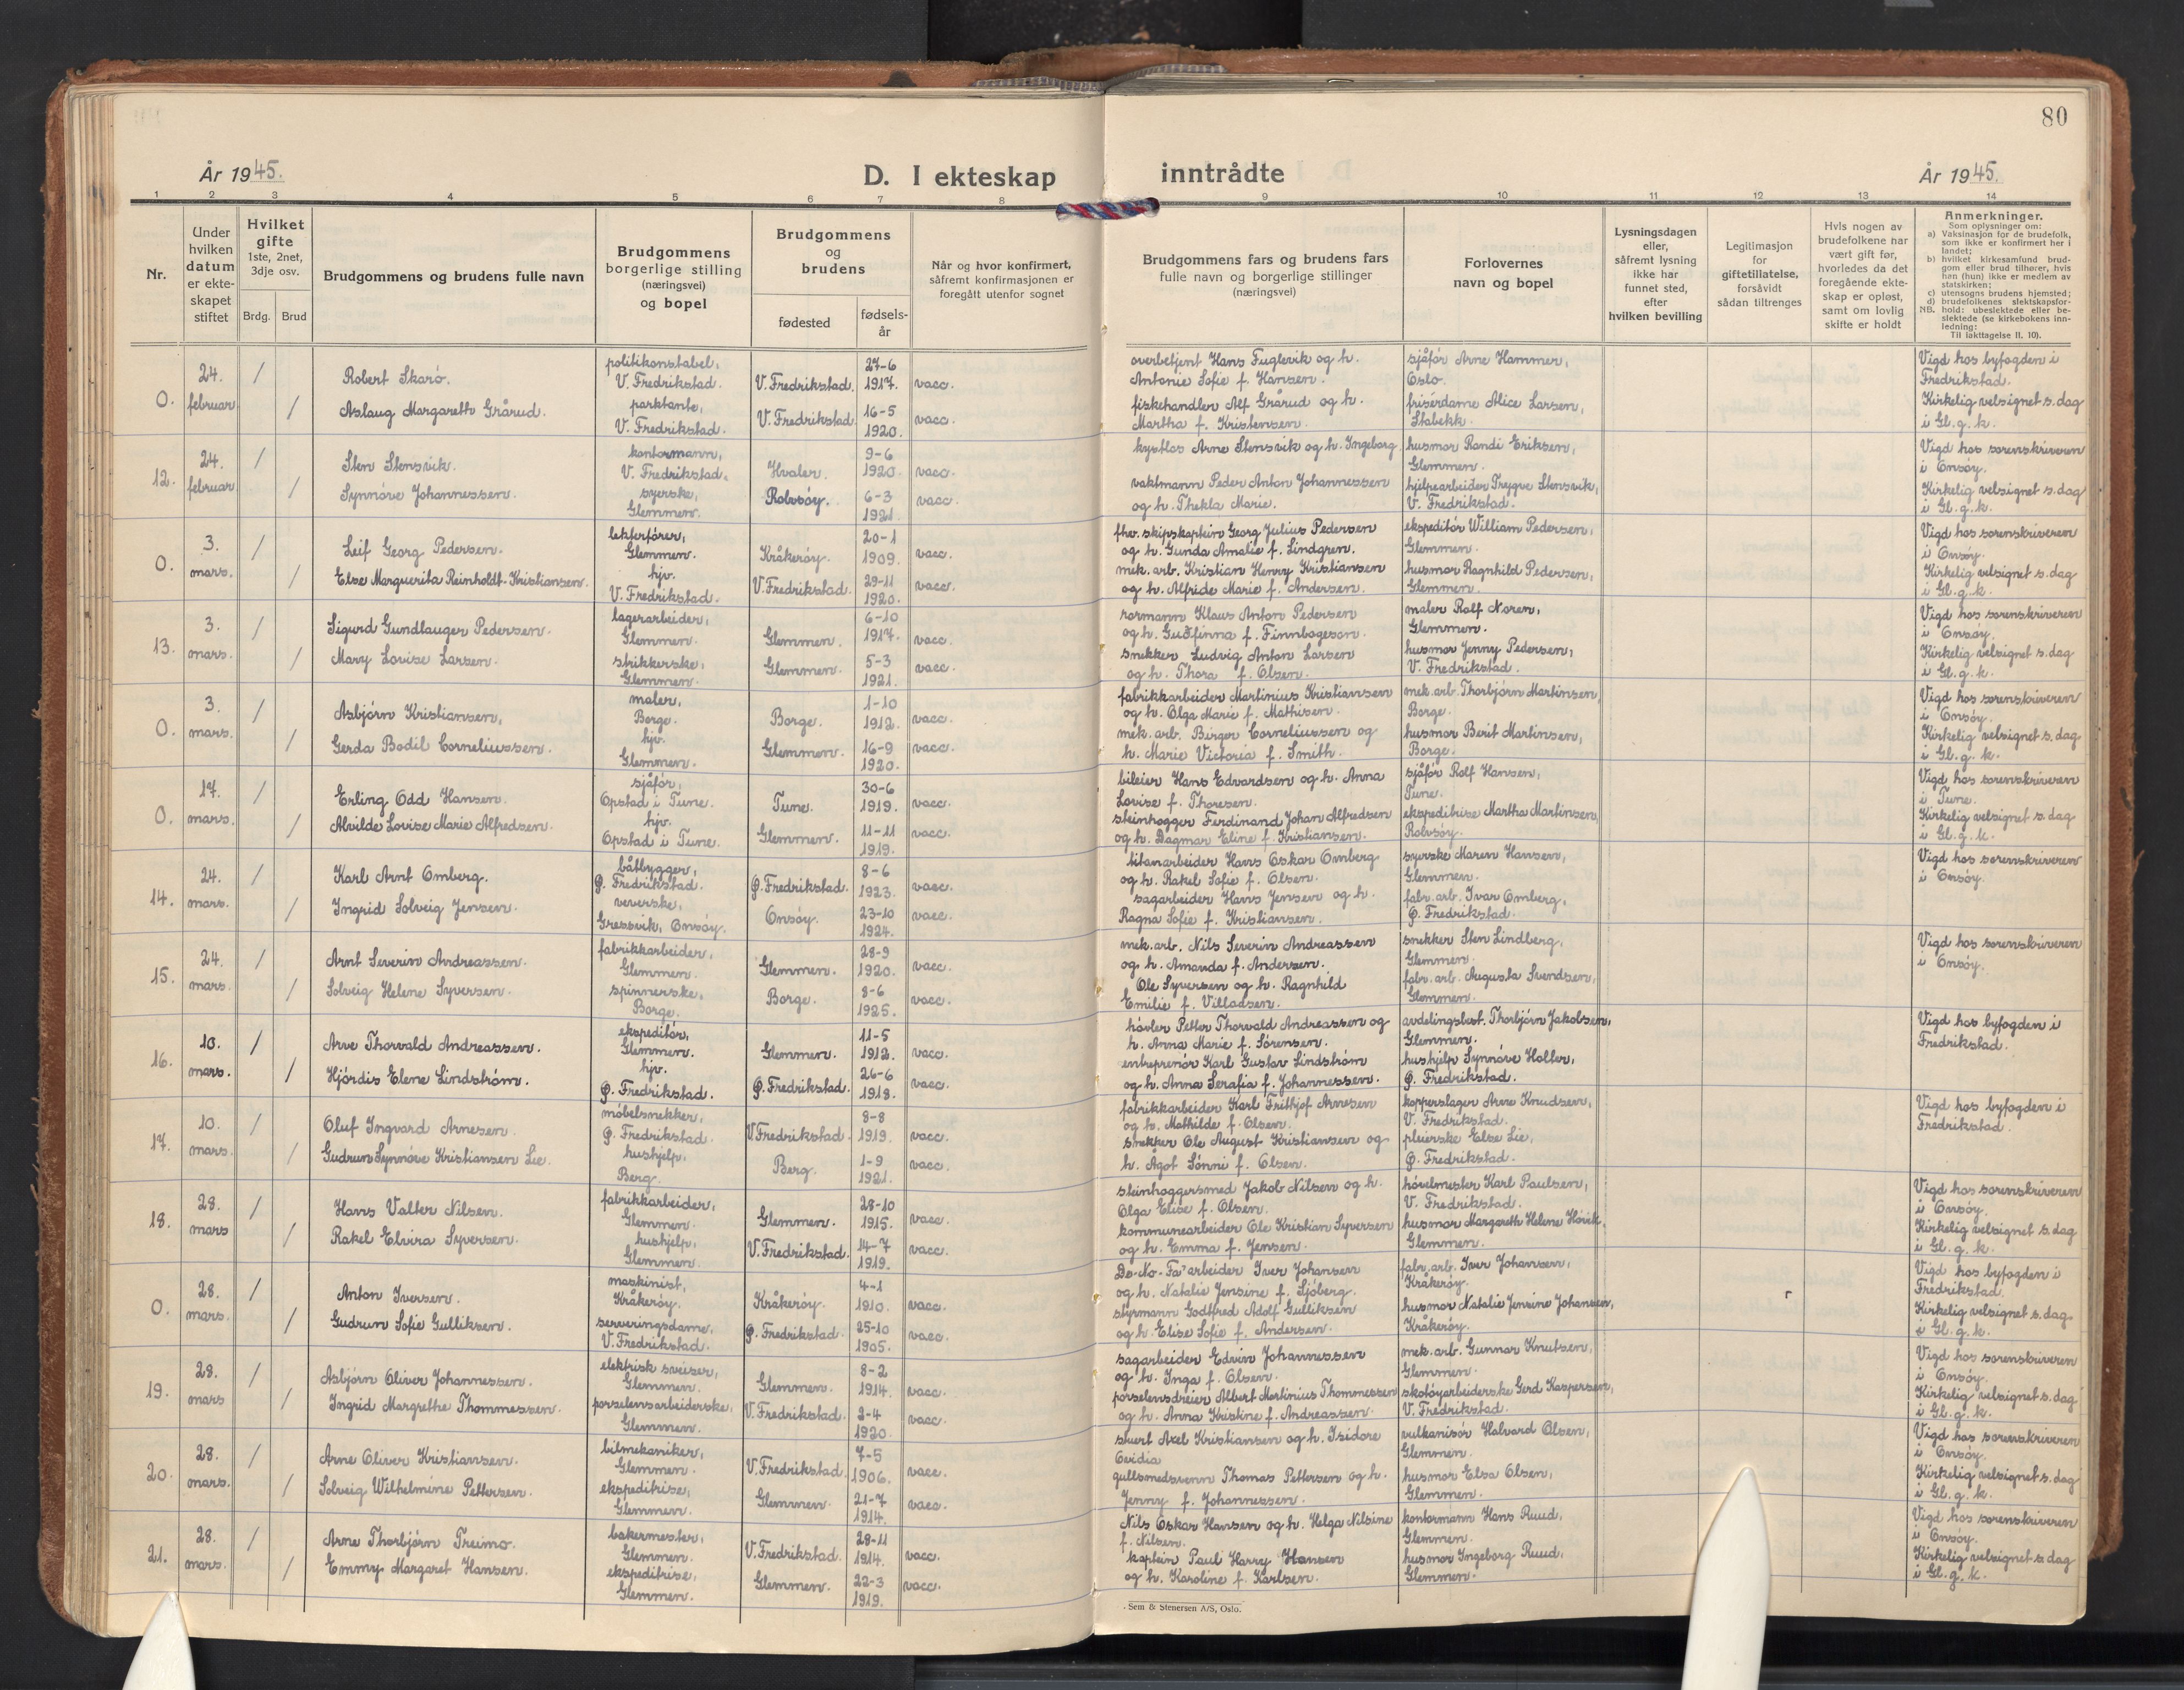 80
År 1945.
D. I ekteskap
inntrådte
År 1945.
1 2 3 4 5 6 7 8 9 10 11 12 13 14
Nr.
Under
hvilken
datum
er ekte-
skapet
stiftet
Hvilket
gifte
1ste, 2net,
3dje osv.
Brdg. Brud
Brudgommens og brudens fulle navn
Brudgommens
borgerlige stilling
(næringsvei)
og bopel
Brudgommens
og
brudens
fødested
fødsels-
år
Når og hvor konfirmert,
såfremt konfirmasjonen er
foregått utenfor sognet
Brudgommens fars og brudens fars
fulle navn og borgerlige stillinger
(næringsvei)
Forlovernes
navn og bopel
Lysningsdagen
eller,
såfremt lysning
ikke har
funnet sted,
efter
hvilken bevilling
Legitimasjon
for
giftetillatelse,
forsåvidt
sådan tiltrenges
Hvis nogen av
brudefolkene har
vært gift før,
hvorledes da det
foregående ekte-
skap er opløst,
samt om lovlig
skifte er holdt
Anmerkninger.
Som oplysninger om:
a) Vaksinasjon for de brudefolk,
som ikke er konfirmert her i
landet;
b) hvilket kirkesamfund brud-
gom eller brud tilhører, hvis
han (hun) ikke er medlem av
statskirken;
c) utensogns brudens hjemsted;
d) brudefolkenes slektskapsfor-
NB. hold: ubeslektede eller be-
slektede (se kirkebokens inn-
ledning:
Til iakttagelse II. 10).
0. 24. februar / Robert Skarø. politikonstabel, V. Fredrikstad. V. Fredrikstad. 27-6 1917. vacc. overbetjent Hans Fuglevik og h. Antonie Sofie f. Hansen. sjåfór Arne Hammer, Oslo. Vigd hos byfogden i Fredrikstad.
/ Aslaug Margareth Grårud. parktante, V. Fredrikstad. V. Fredrikstad. 16-5 1920. vacc. fiskehandler Alf Grårud og h. Martha f. Kristensen. frisérdame Alice Larsen, Stabekk. Kirkelig velsignet s. dag i Gl. g. k.
12. 24. februar / Sten Stensvik. kontormann, V. Fredrikstad. Hvaler. 9-6 1920. vacc. Arne Stensvik og h. Ingeborg husmor Randi Eriksen, Glemmen. Vigd hos sorenskriveren i Onsøy.
/ Synnóve Johannessen. syerske, Glemmen. Rolvsøy. 6-3 1921. vacc. vaktmann Peder Anton Johannessen og h. Thekla Marie. hjelpearbeider Trygve Stensvik, V. Fredrikstad. Kirkelig velsignet s. dag i Gl. g. k.
0. 3. mars. / Leif Georg Pedersen. lekterfórer, Glemmen. Kråkerøy. 20-1 1909. vacc. fhv. skipskaptein Georg Julius Pedersen og h. Gunda Amalie f. Lindgren. ekspeditór William Pedersen, Glemmen. Vigd hos sorenskriveren i Onsøy.
/ Else Marguerita Reinholdt-Kristiansen. hjv. V. Fredrikstad. V. Fredrikstad. 29-11 1920. vacc. mek. arb. Kristian Henry Kristiansen og h. Alfride Marie f. Andersen. husmor Ragnhild Pedersen, Glemmen. Kirkelig velsignet s. dag i Gl. g. k.
13. 3. mars. / Sigurd Gundlauger Pedersen. lagerarbeider, Glemmen. Glemmen. 6-10 1917. vacc. rormann Klaus Anton Pedersen og h. Gudfinna f. Finnbogeson. maler Rolf Noren, Glemmen. Vigd hos sorenskriveren i Onsøy.
/ Mary Lovise Larsen. strikkerske, Glemmen. Glemmen. 5-3 1921. vacc. snekker Ludvig Anton Larsen og h. Thora f. Olsen. husmor Jenny Pedersen, V. Fredrikstad. Kirkelig velsignet s. dag i Gl. g. k.
0. 3. mars. / Asbjórn Kristiansen, maler, Borge. Borge. 1-10 1912. vacc. fabrikkarbeider Martinius Kristiansen og h. Olga Marie f. Mathisen. mek. arb. Thorbjórn Martinsen, Borge. Vigd hos sorenskriveren i Onsøy.
/ Gerda Bodil Corneliussen. hjv. Glemmen. Glemmen. 16-9 1920. vacc. mek. arb. Birger Corneliussen og h. Marie Victoria f. Smith. husmor Berit Martinsen, Borge. Kirkelig velsignet s. dag i Gl. g. k.
0. 17. mars. / Erling Odd Hansen. sjåfór, Opstad i Tune. Tune. 30-6 1919. vacc. bileier Hans Edvardsen og h. Anna Lovise f. Thoresen. sjåfór Rolf Hansen, Tune. Vigd hos sorenskriveren i Tune.
/ Alvilde Lovise Marie Alfredsen. hjv. Opstad i Tune. Glemmen. 11-11 1919. vacc. steinhogger Ferdinand Johan Alfredsen og h. Dagmar Eline f. Kristiansen. ekspeditrise Martha Martinsen, Rolvsøy. Kirkelig velsignet s. dag i Gl. g. k.
14. 24. mars. / Karl Arnt Omberg. båtbygger, Ø. Fredrikstad. Ø. Fredrikstad. 8-6 1923. vacc. titanarbeider Hans Oskar Omberg og h. Rakel Sofie f. Olsen. syerske Maren Hansen, Glemmen. Vigd hos sorenskriveren i Onsøy.
/ Ingrid Solveig Jensen. veverske, Gressvik, Onsøy. Onsøy. 23-10 1924. vacc. sagarbeider Hans Jensen og h. Ragna Sofie f. Kristiansen. fabr. arb. Ivar Omberg, Ø. Fredrikstad.
15. 24. mars. / Arnt Severin Andreassen. fabrikkarbeider, Glemmen. Glemmen. 28-9 1920. vacc. mek. arb. Nils Severin Andreassen og h. Amanda f. Andersen. snekker Sten Lindberg, Glemmen. Vigd hos sorenskriveren i Onsøy.
/ Solveig Helene Syversen. spinnerske, Borge. Borge. 8-6 1925. vacc. Ole Syversen og h. Ragnhild Emilie f. Villadsen. fabr. arb. Augusta Svendsen, Glemmen.
16. 10. mars. / Arve Thorvald Andreassen. ekspeditór, Glemmen. Glemmen. 11-5 1912. vacc. hóvler Petter Thorvald Andreassen og h. Anna Marie f. Sórensen. avdelingsbest. Thorbjórn Jakobsen, Glemmen. Vigd hos byfogden i Fredrikstad.
/ Hjórdis Elene Lindstróm. hjv. Ø. Fredrikstad. Ø. Fredrikstad. 26-6 1918. vacc. entreprenór Karl Gustav Lindstróm og h. Anna Serafia f. Johannessen. hushjelp Synnóve Holler, Ø. Fredrikstad.
17. 10. mars. / Oluf Ingvard Arnesen. móbelsnekker, Ø. Fredrikstad. V. Fredrikstad. 8-8 1919. vacc. fabrikkarbeider Karl Frithjof Arnesen og h. Mathilde f. Olsen. kopperslager Arne Knudsen, V. Fredrikstad. Vigd hos byfogden i Fredrikstad.
/ Gudrun Synnóve Kristiansen Lie. hushjelp, Berg. Berg. 1-9 1921. vacc. snekker Ole August Kristiansen og h. Ågot Sónni f. Olsen. pleierske Else Lie, Ø. Fredrikstad.
18. 28. mars / Hans Valter Nilsen. fabrikkarbeider, Glemmen. Glemmen. 28-10 1915. vacc. steinhoggersmed Jakob Nilsen og h. Olga Elise f. Olsen. hóvelmester Karl Paulsen, V. Fredrikstad. Vigd hos sorenskriveren i Onsøy.
/ Rakel Elvira Syversen. hushjelp, Glemmen. V. Fredrikstad. 14-7 1919. vacc. kommunearbeider Ole Kristian Syversen og h. Emma f. Jensen. husmor Margareth Helene Hóvik, Glemmen. Kirkelig velsignet s. dag i Gl. g. k.
0. 28. mars. / Anton Iversen. maskinist, Kråkerøy. Kråkerøy. 4-1 1910. vacc. De-No-Fa' arbeider Iver Johansen og h. Natalie Jensine f. Sjóberg. fabr. arb. Iver Johansen, Kråkerøy. Vigd hos byfogden i Fredrikstad.
/ Gudrun Sofie Gulliksen. serveringsdame, V. Fredrikstad. Ø. Fredrikstad. 25-10 1905. vacc. styrmann Godtfred Adolf Gulliksen og h. Elise Sofie f. Andersen. husmor Natalie Jensine Johansen, Kråkerøy. Kirkelig velsignet s. dag i Gl. g. k.
19. 28. mars / Asbjórn Oliver Johannessen. elektrisk sveiser, Glemmen. Glemmen. 8-2 1914. vacc. sagarbeider Edvin Johannessen og h. Inga f. Olsen. mek. arb. Gunnar Knutsen, Glemmen. Vigd hos sorenskriveren i Onsøy.
/ Ingrid Margrethe Thommessen. porselensarbeiderske, Glemmen. V. Fredrikstad. 2-4 1920. vacc. porselensdreier Albert Martinius Thommessen og h. Anna Kristine f. Andreassen. skotóyarbeiderske Gerd Kaspersen, V. Fredrikstad. Kirkelig velsignet s. dag i Gl. g. k.
20. 28. mars. / Arne Oliver Kristiansen. bilmekaniker, Glemmen. V. Fredrikstad. 7-5 1906. vacc. stuert Axel Kristiansen og h. Isidore vulkanisór Halvard Olsen, Glemmen. Vigd hos sorenskriveren i Onsøy.
/ Solveig Wilhelmine Pettersen. ekspeditrise, Glemmen. Glemmen. 21-7 1914. vacc. gullsmedsvenn Thomas Pettersen og h. Jenny f. Johannessen. husmor Elsa Olsen, Glemmen. Kirkelig velsignet s. dag i Gl. g. k.
21. 28. mars. / Arne Thorbjórn Treimo. bakermester, Glemmen. V. Fredrikstad. 29-11 1914. vacc. Nils Oskar Hansen og h. Helga Nilsine f. Nilsen. kontormann Hans Ruud, Glemmen. Vigd hos sorenskriveren i Onsøy.
/ Emmy Margaret Hansen. ekspeditrise, Glemmen. Glemmen. 22-3 1919. vacc. kaptein Paul Harry Hansen og h. Karoline f. Karlsen. husmor Ingeborg Ruud, Glemmen. Kirkelig velsignet s. dag i Gl. g. k.
Sem & Stenersen A/S, Oslo.